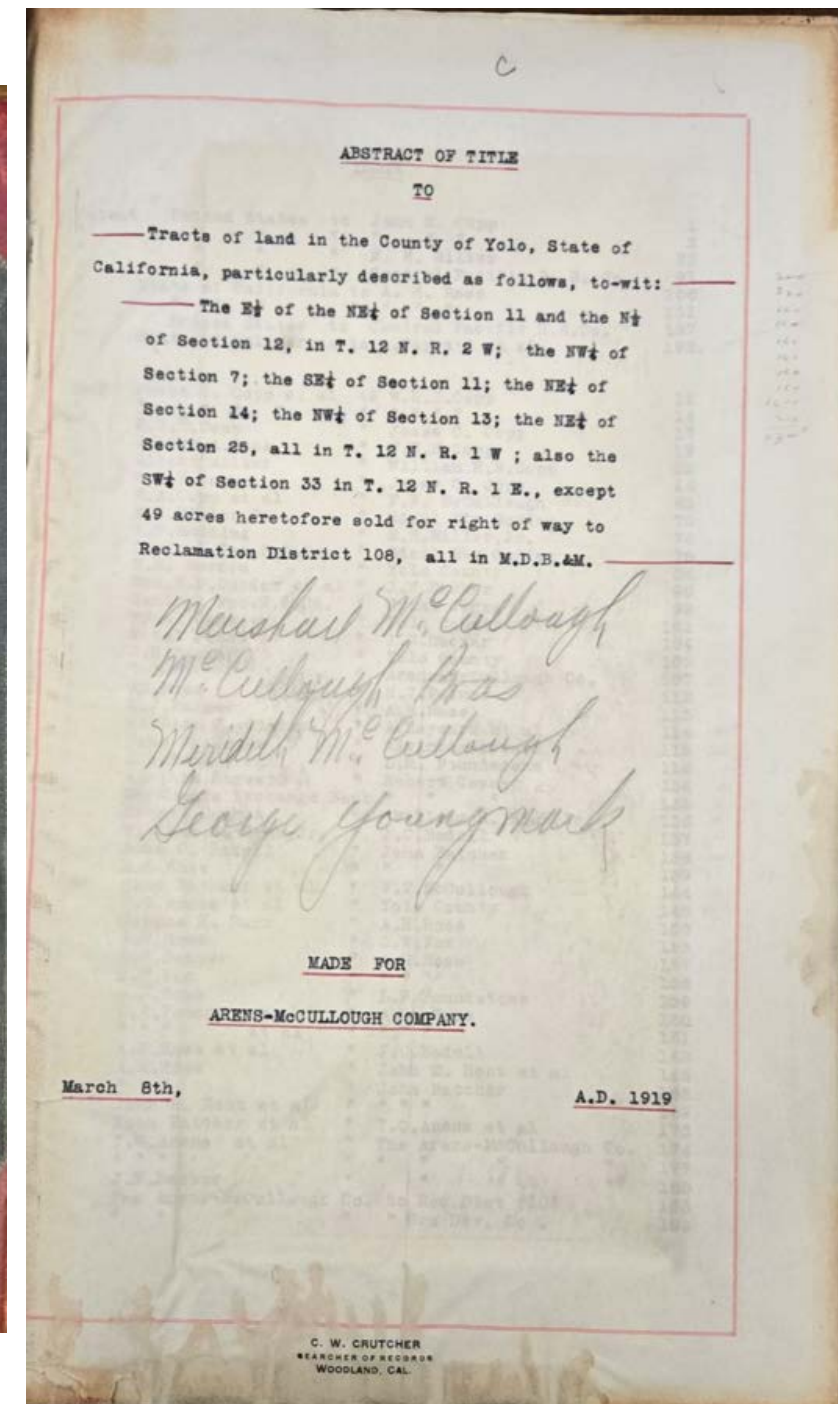 C
ABSTRACT OF TITLE
TO
Tracts of land in the County of Yolo, State of
California, particularly described as follows, to-wit:
The E½ of the NE¼ of Section 11 and the N½
of Section 12, in T. 12 N. R. 2 W; the NW¼ of
Section 7; the SE¼ of Section 11; the NE¼ of
Section 14; the NW¼ of Section 13; the NE¼ of
Section 25, all in T. 12 N. R. 1 W ; also the
SW¼ of Section 33 in T. 12 N. R. 1 E., except
49 acres heretofore sold for right of way to
Reclamation District 108, all in M.D.B.&M.
Marshall McCullough
McCullough Bros
Merideth McCullough
George Youngmark
MADE FOR
ARENS-McCULLOUGH COMPANY.
March 8th, A.D. 1919
C. W. CRUTCHER
SEARCHER OF RECORDS
WOODLAND, CAL.